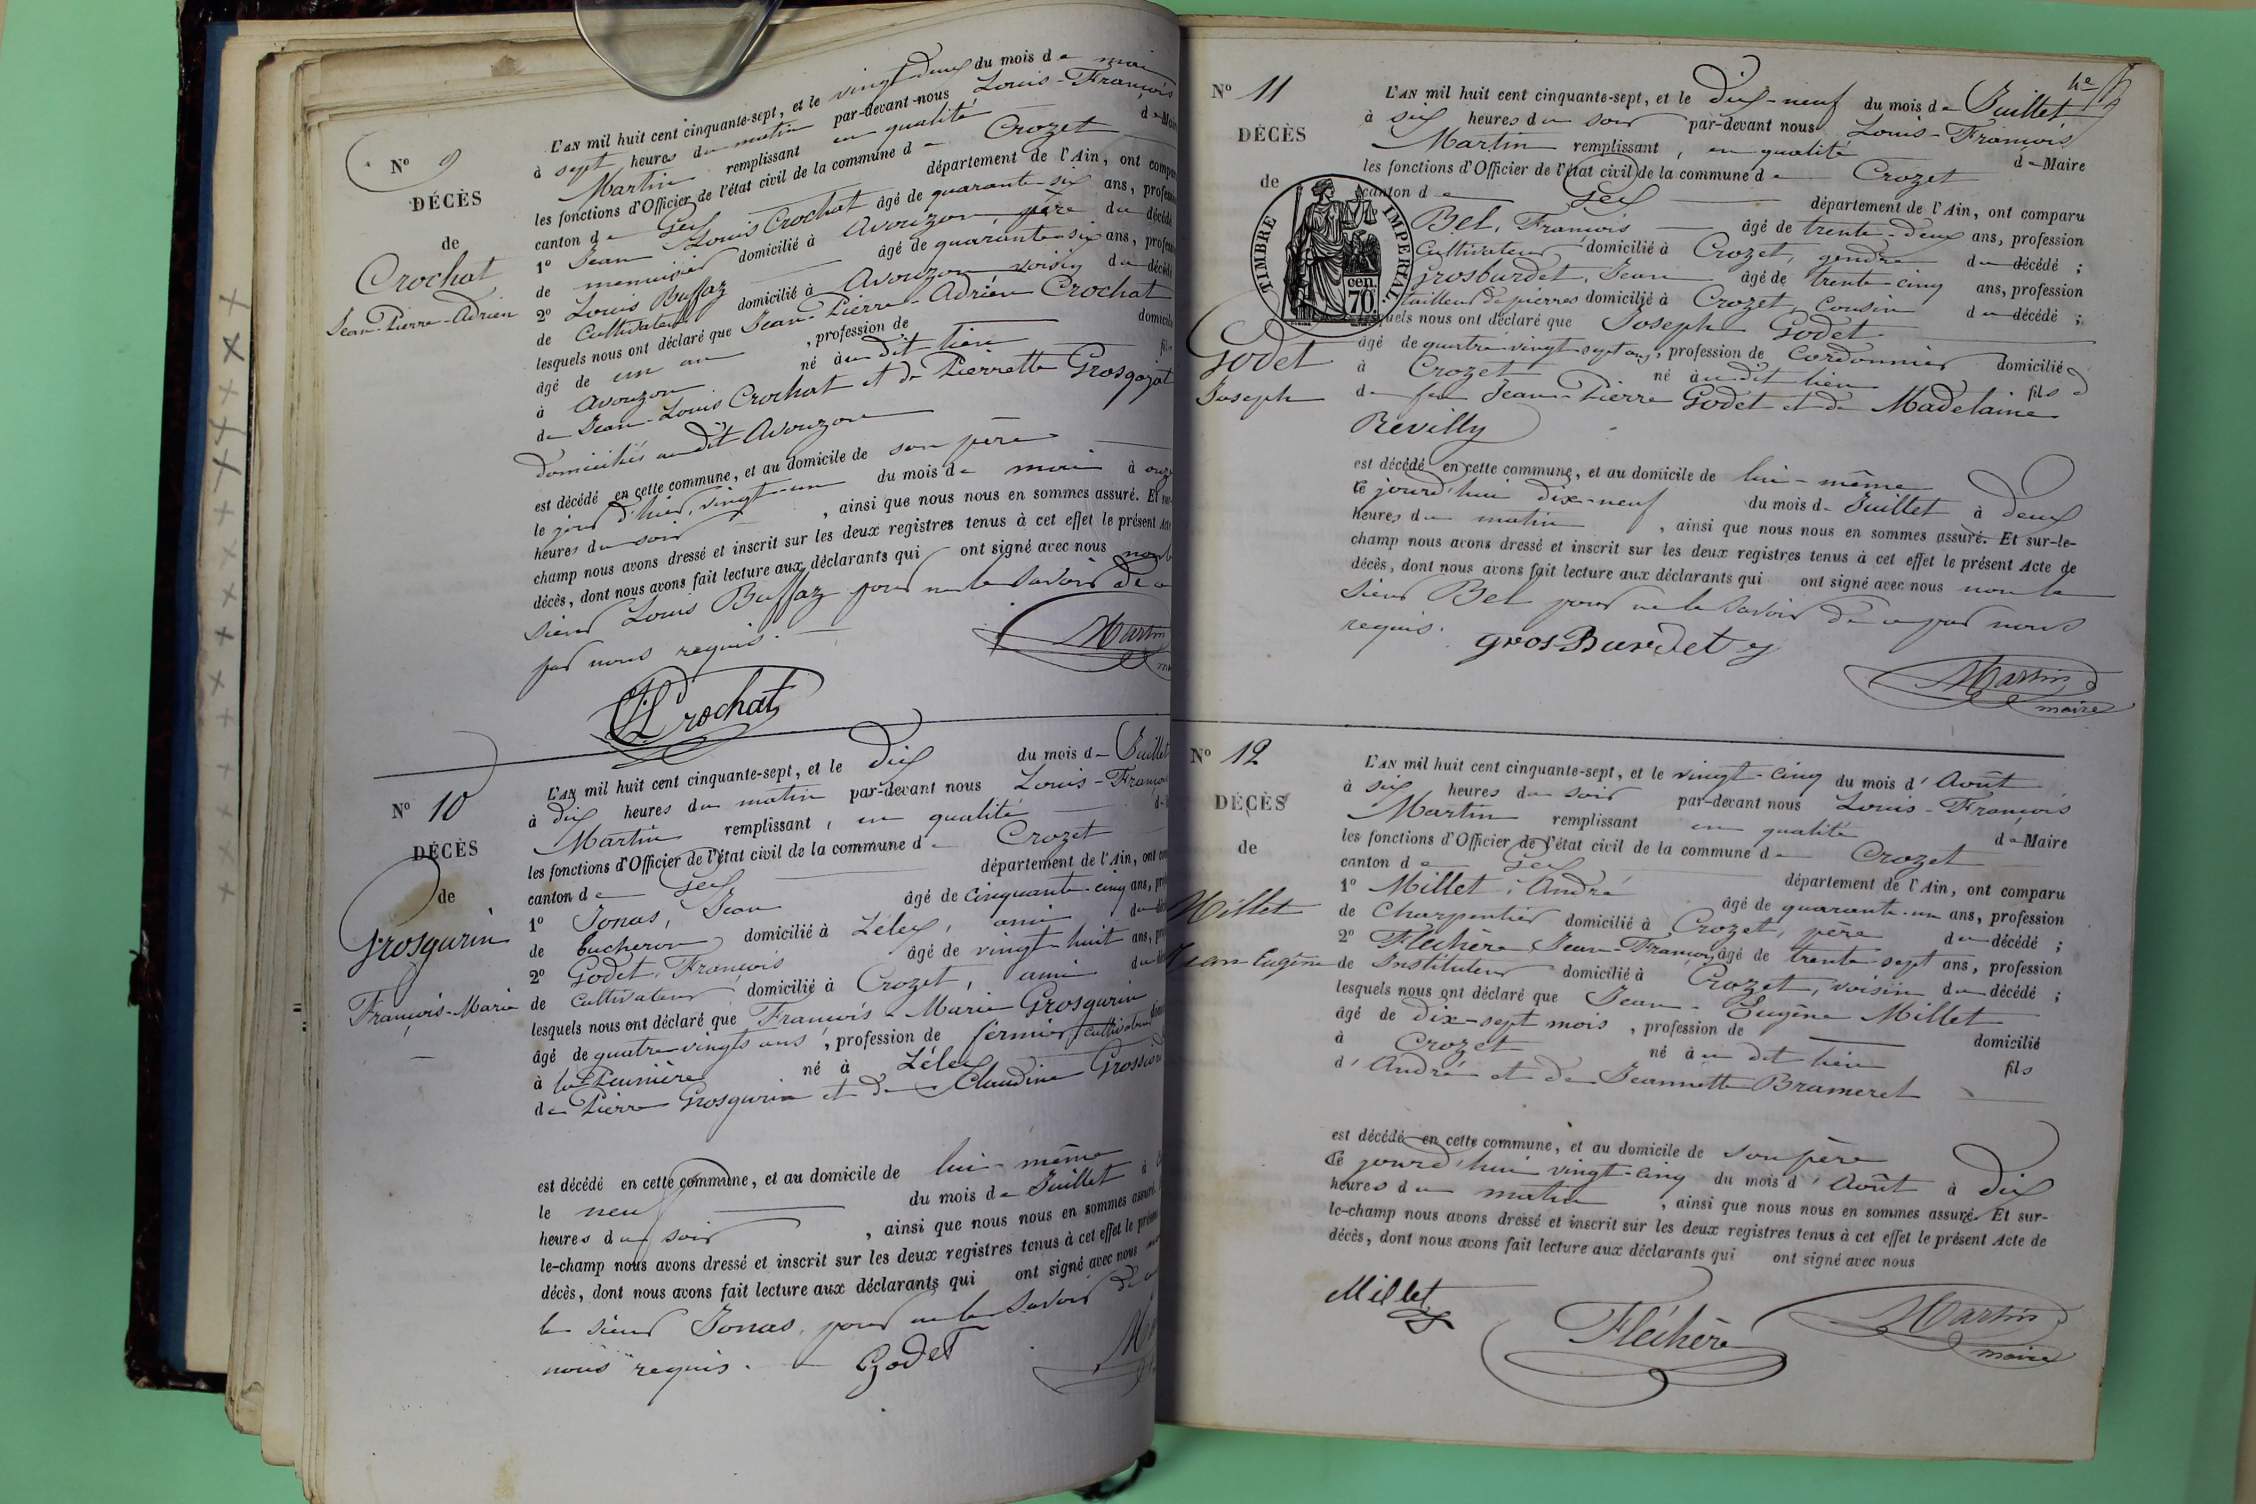 N° 9
DÉCÈS
de
Crochat
Jean-Pierre-Adrien
L'AN mil huit cent cinquante-sept, et le vingt deux du mois de mai
à sept heures du matin par-devant-nous Louis-François
Martin remplissant en qualité de Maire
les fonctions d'Officier de l'état civil de la commune de Crozet
canton de Gex département de l'Ain, ont compa
1° Jean Louis Crochat âgé de quarante six ans, profes
de menuisier domicilié à Avouzon, père du décédé
2° Louis Buffaz âgé de quarante six ans, profes
de Cultivateur domicilié à Avouzon, voisin du décédé
lesquels nous ont déclaré que Jean-Pierre-Adrien Crochat
âgé de un an , profession de domicilié
à Avouzon né au dit lieu fils
de Jean-Louis Crochat et de Pierrette Grosgozat
domiciliés au dit Avouzon
est décédé en cette commune, et au domicile de son père
le jour d'hier, vingt-un du mois de mai à onze
heures du soir , ainsi que nous nous en sommes assuré. Et sur-
champ nous avons dressé et inscrit sur les deux registres tenus à cet effet le présent Acte
décès, dont nous avons fait lecture aux déclarants qui ont signé avec nous non le
sieur Louis Buffaz pour ne le savoir de ce
par nous requis.
Crochat
Martin
N° 10
DÉCÈS
de
Grosgurin
François-Marie
L'AN mil huit cent cinquante-sept, et le dix du mois de Juillet
à dix heures du matin par-devant nous Louis-François
Martin remplissant, en qualité
les fonctions d'Officier de l'état civil de la commune de Crozet
canton de Gex département de l'Ain, ont com
1° Jonas, Jean âgé de cinquante-cinq ans, pro
de bucheron domicilié à Lélex, ami du déc
2° Godet, François âgé de vingt huit ans, pro
de Cultivateur domicilié à Crozet, ami du
lesquels nous ont déclaré que François-Marie Grosgurin
âgé de quatre vingts ans, profession de fermier cultivateur
à né à Lélex
de Pierre Grosgurin et de Claudine
est décédé en cette commune, et au domicile de lui-même
le neuf du mois de Juillet à
heures du soir , ainsi que nous nous en sommes assuré.
le-champ nous avons dressé et inscrit sur les deux registres tenus à cet effet le présent
décès, dont nous avons fait lecture aux déclarants qui ont signé avec nous
le sieur Jonas, pour ne le savoir de
nous requis. Godet
N° 11
DÉCÈS
de
TIMBRE IMPÉRIAL.
70. cen.
Godet
Joseph
L'AN mil huit cent cinquante-sept, et le dix-neuf du mois de Juillet
à six heures du soir par-devant nous Louis-François
Martin remplissant, en qualité de Maire
les fonctions d'Officier de l'état civil de la commune de Crozet
canton de Gex département de l'Ain, ont comparu
Bel, François âgé de trente-deux ans, profession
Cultivateur domicilié à Crozet, gendre du décédé ;
Grosburdet, Jean âgé de trente cinq ans, profession
tailleur de pierres domicilié à Crozet, cousin du décédé ;
quels nous ont déclaré que Joseph Godet
âgé de quatre vingt sept ans, profession de Cordonnier domicilié
à Crozet né au dit lieu fils
de feu Jean-Pierre Godet et de Madelaine
Revilly
est décédé en cette commune, et au domicile de lui-même
Ce jourd'hui dix-neuf du mois de Juillet à deux
heures du matin , ainsi que nous nous en sommes assuré. Et sur-le-
champ nous avons dressé et inscrit sur les deux registres tenus à cet effet le présent Acte de
décès, dont nous avons fait lecture aux déclarants qui ont signé avec nous non le
sieur Bel pour ne le savoir de ce par nous
requis.
grosBurdet
Martin
maire
N° 12
DÉCÈS
de
Millet
Jean Eugène
L'AN mil huit cent cinquante-sept, et le vingt-cinq du mois d'Août
à six heures du soir par-devant nous Louis-François
Martin remplissant en qualité de Maire
les fonctions d'Officier de l'état civil de la commune de Crozet
canton de Gex département de l'Ain, ont comparu
1° Millet, André âgé de quarante-un ans, profession
de Charpentier domicilié à Crozet, père du décédé ;
2° Fléchère Jean-François âgé de trente sept ans, profession
de Instituteur domicilié à Crozet, voisin du décédé ;
lesquels nous ont déclaré que Jean-Eugène Millet
âgé de dix-sept mois , profession de domicilié
à Crozet né au dit lieu fils
d'André et de Jeannette Brameret
est décédé en cette commune, et au domicile de son père
Ce jourd'hui vingt-cinq du mois d'Août à dix
heures du matin , ainsi que nous nous en sommes assuré. Et sur-
le-champ nous avons dressé et inscrit sur les deux registres tenus à cet effet le présent Acte de
décès, dont nous avons fait lecture aux déclarants qui ont signé avec nous
Millet
Fléchère
Martin
maire